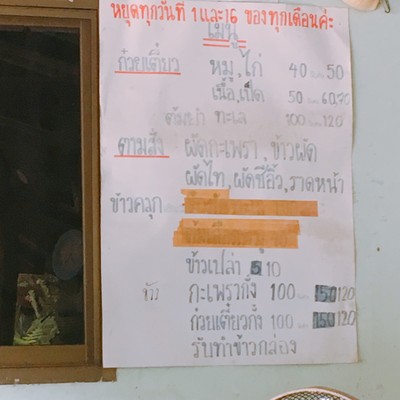 หยุดทุกวันที่ 1 และ 16 ของทุกเดือนค่ะ
เมนู
ก๋วยเตี๋ยว หมู, ไก่ 40 50
เนื้อ, เป็ด 50 60.70
ต้มยำ ทะเล 100 120
ตามสั่ง ผัดกะเพรา, ข้าวผัด
ผัดไท, ผัดซีอิ๊ว, ราดหน้า
ข้าวคลุก
ข้าวเปล่า 10
ข้าว กะเพรากุ้ง 100 120
ก๋วยเตี๋ยวกุ้ง 100 120
รับทำข้าวกล่อง